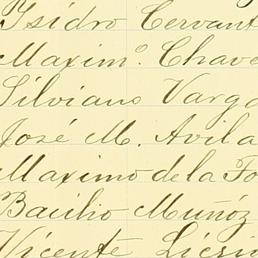 Isidro Cervant
Maximº. Chave
Silviano Varga
José M. Avila
Maximo de la Fo
Bacilio Muñóz
Vicente